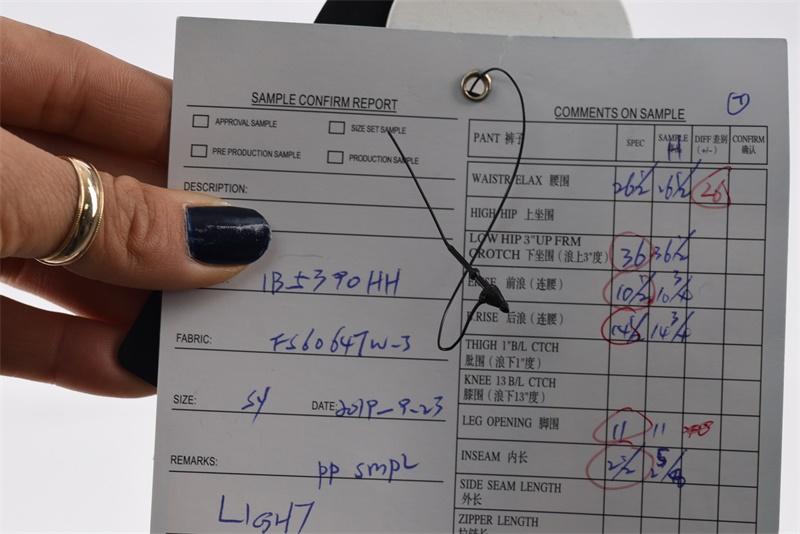 SAMPLE CONFIRM REPORT
APPROVAL SAMPLE
SIZE SET SAMPLE
PRE PRODUCTION SAMPLE
PRODUCTION SAMPLE
DESCRIPTION:
1B5390HH
FABRIC: FS60647W-3
SIZE: SY DATE: 2019-9-23
REMARKS: pp smpl
LIGHT
COMMENTS ON SAMPLE
PANT 裤子 SPEC SAMPLE DIFF 差别 (+/-) CONFIRM 确认
WAISTRELAX 腰围 26 1/2 26 1/2 26
HIGH HIP 上坐围
LOW HIP 3"UP FRM
CROTCH 下坐围（浪上3"度） 36 36 1/2
前浪（连腰） 10 1/2 10 3/4
RISE 后浪（连腰） 14 1/2 14 3/4
THIGH 1"B/L CTCH
肶围（浪下1"度）
KNEE 13 B/L CTCH
膝围（浪下13"度）
LEG OPENING 脚围 11 11
INSEAM 内长
SIDE SEAM LENGTH
外长
ZIPPER LENGTH